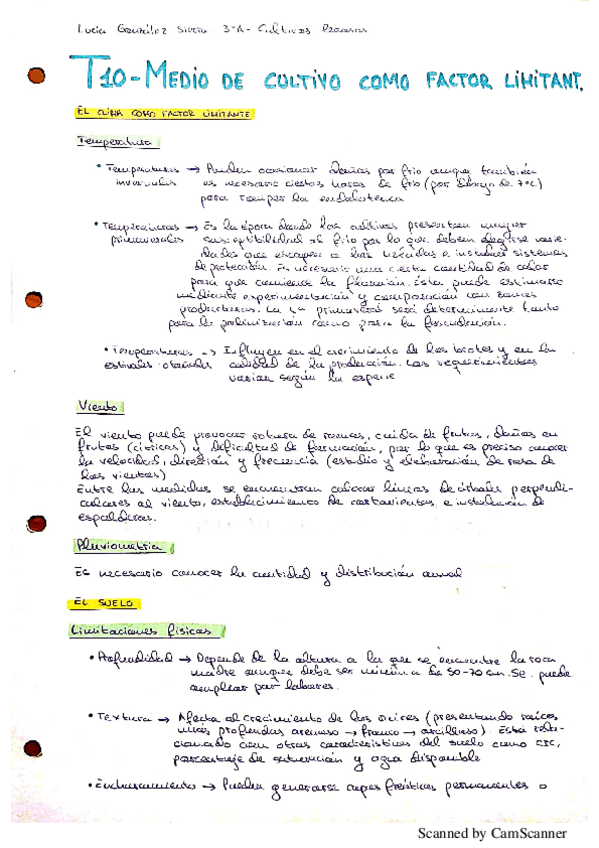 Lucía González Sierra 3ºA - Cultivos Leñosos
T10-MEDIO DE CULTIVO COMO FACTOR LIMITANT.
EL CLIMA COMO FACTOR LIMITANTE
Temperatura
• Temperaturas → Pueden ocasionar daños por frío aunque también
invernales es necesario ciertas horas de frío (por debajo de 7ºC)
para romper la endolatencia
• Temperaturas → Es la época donde los cultivos presentan mayor
primaverales susceptibilidad al frío por lo que deben elegirse varie-
dades que escapen a las heladas e instalar sistemas
de protección. Es necesario una cierta cantidad de calor
para que comience la floración. Esta puede estimarse
mediante experimentación y comparación con zonas
productoras. La Tª primaveral será determinante tanto
para la polinización como para la fecundación.
• Temperaturas → Influyen en el crecimiento de los brotes y en la
estivales otoñales calidad de la producción. Los requerimientos
varían según la especie
Viento
El viento puede provocar rotura de ramas, caída de frutos, daños en
frutos (cítricos) y dificultad de formación, por lo que es preciso conocer
la velocidad, dirección y frecuencia (estudio y elaboración de rosa de
los vientos)
Entre las medidas se encuentran colocar líneas de árboles perpendi-
culares al viento, establecimiento de cortavientos e instalación de
espalderas.
Pluviometría
Es necesario conocer la cantidad y distribución anual
EL SUELO
Limitaciones físicas
• Profundidad → Depende de la altura a la que se encuentre la roca
madre aunque debe ser mínimo de 50-70 cm. Se puede
ampliar por labores.
• Textura → Afecta al crecimiento de las raíces (presentando raíces
más profundas arenoso → franco → arcilloso). Está rela-
cionado con otras características del suelo como CIC,
porcentaje de saturación y agua disponible
• Encharcamiento → Pueden generarse capas freáticas permanentes o
Scanned by CamScanner